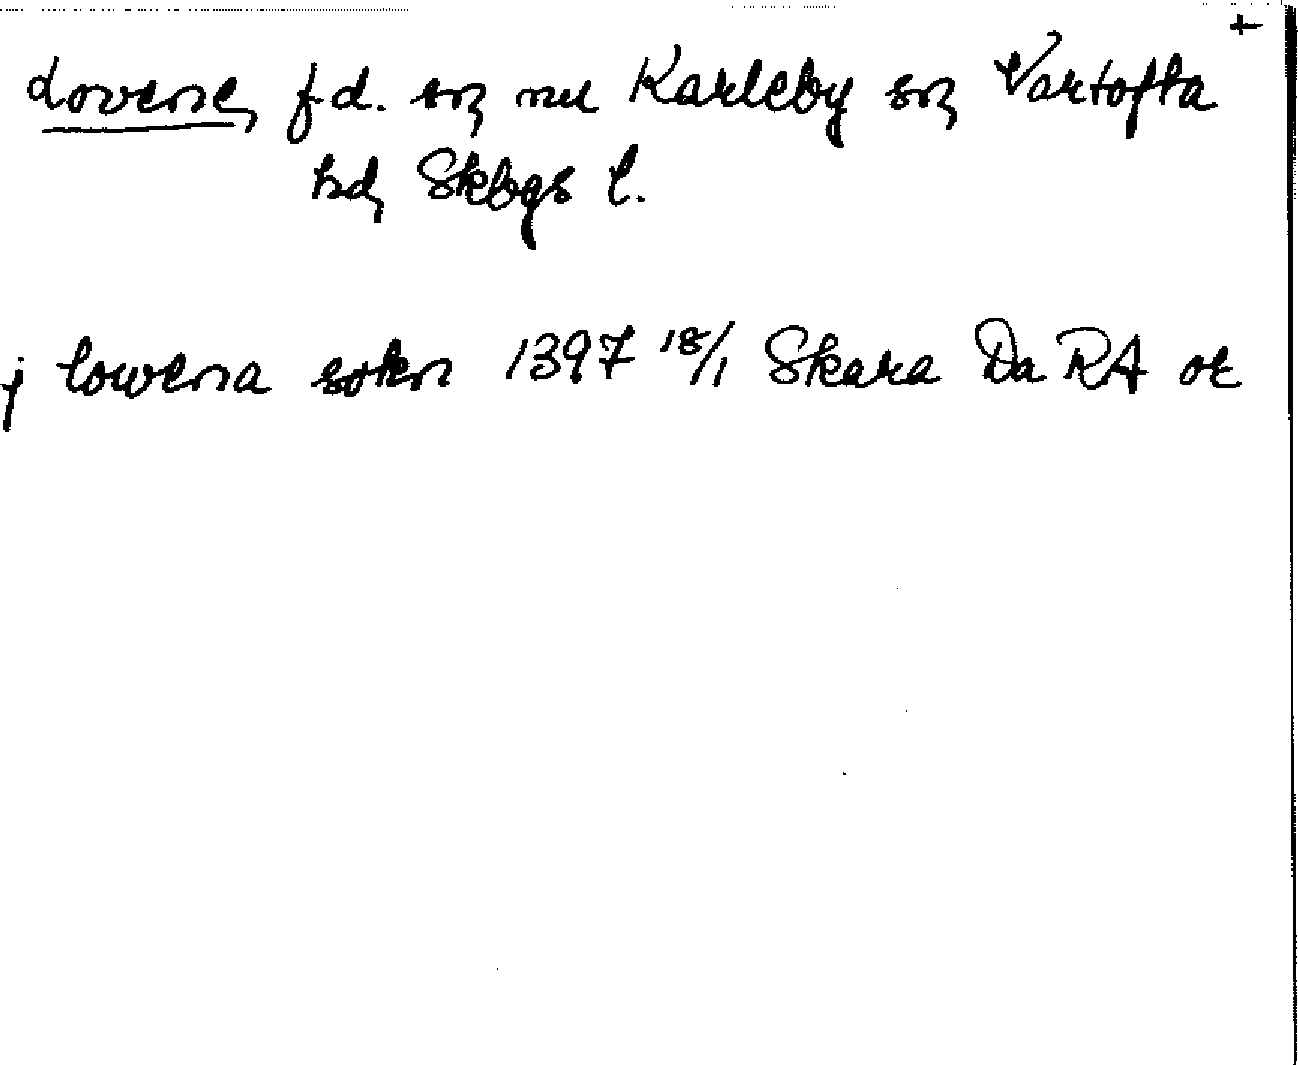 +
Lovene, f.d. sn, nu Karleby sn, Vartofta
hd, Skbgs l.
j lowena sokn 1397 18/1 Skara Da RA or